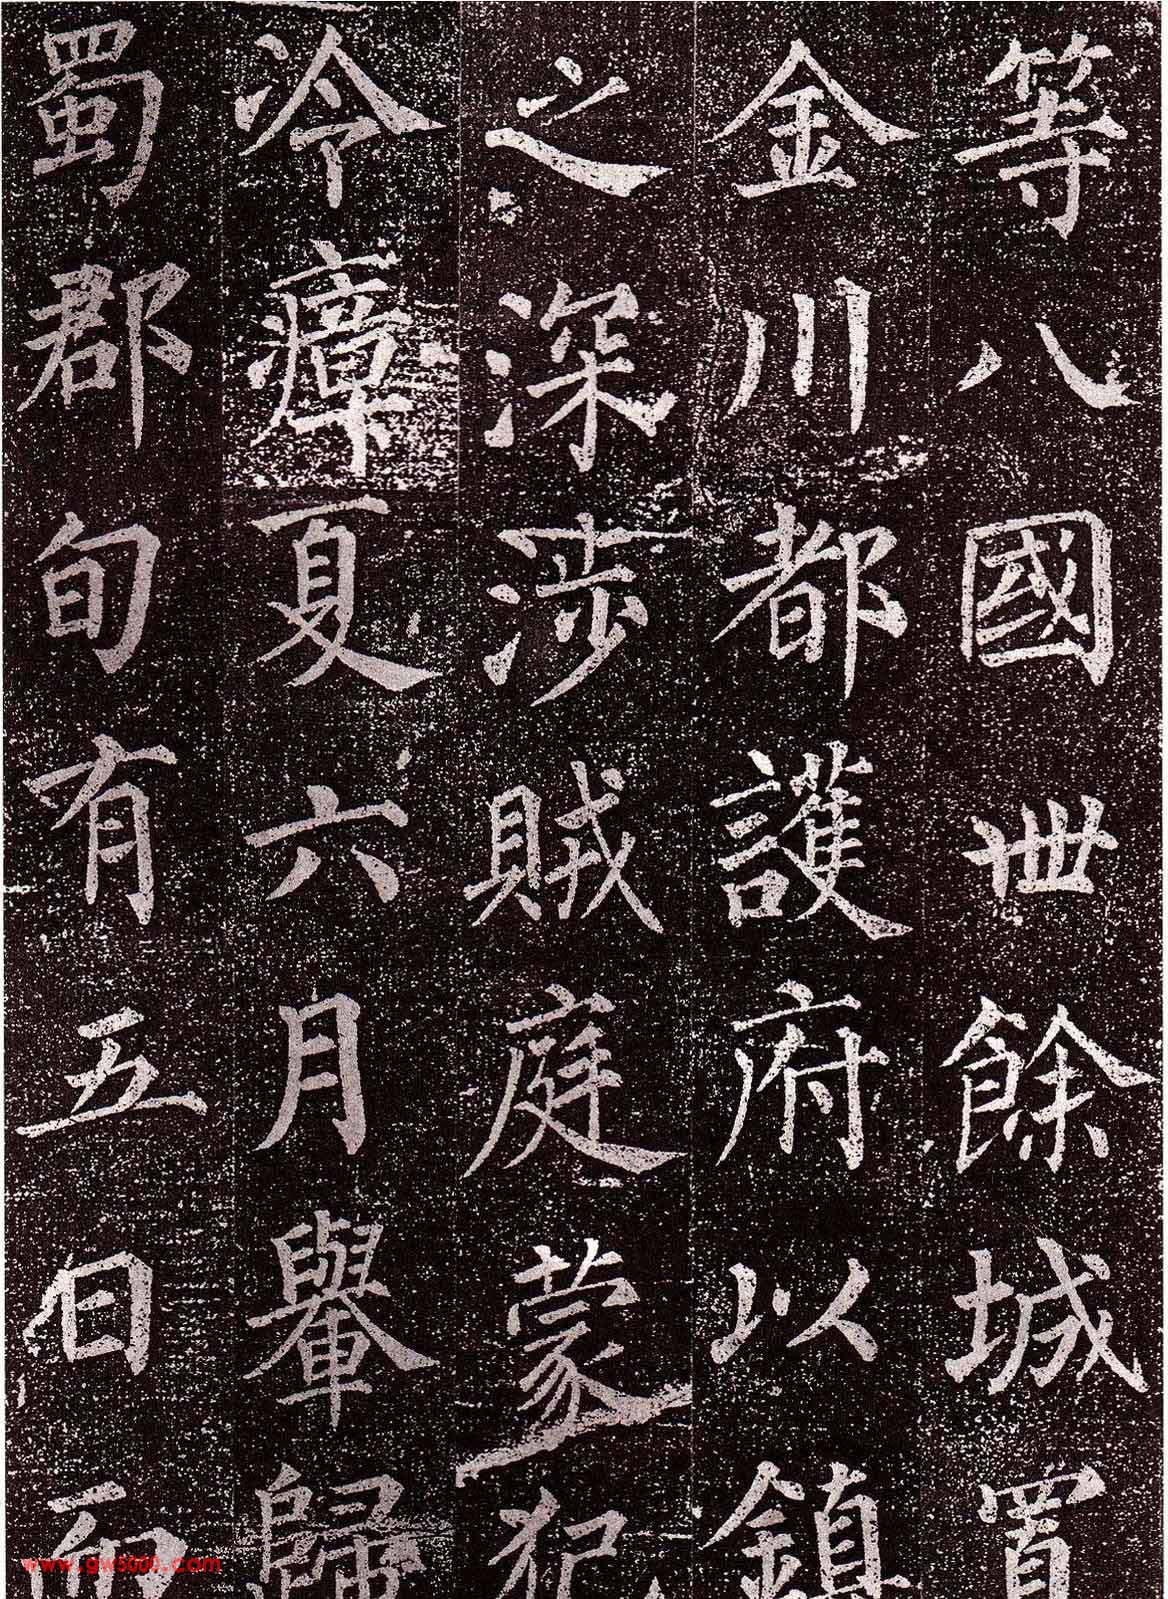 等八國卌餘城置
金川都護府以鎮
之深涉賊庭蒙犯
冷瘴夏六月轝歸
蜀郡旬有五日而
www.gw5000.com